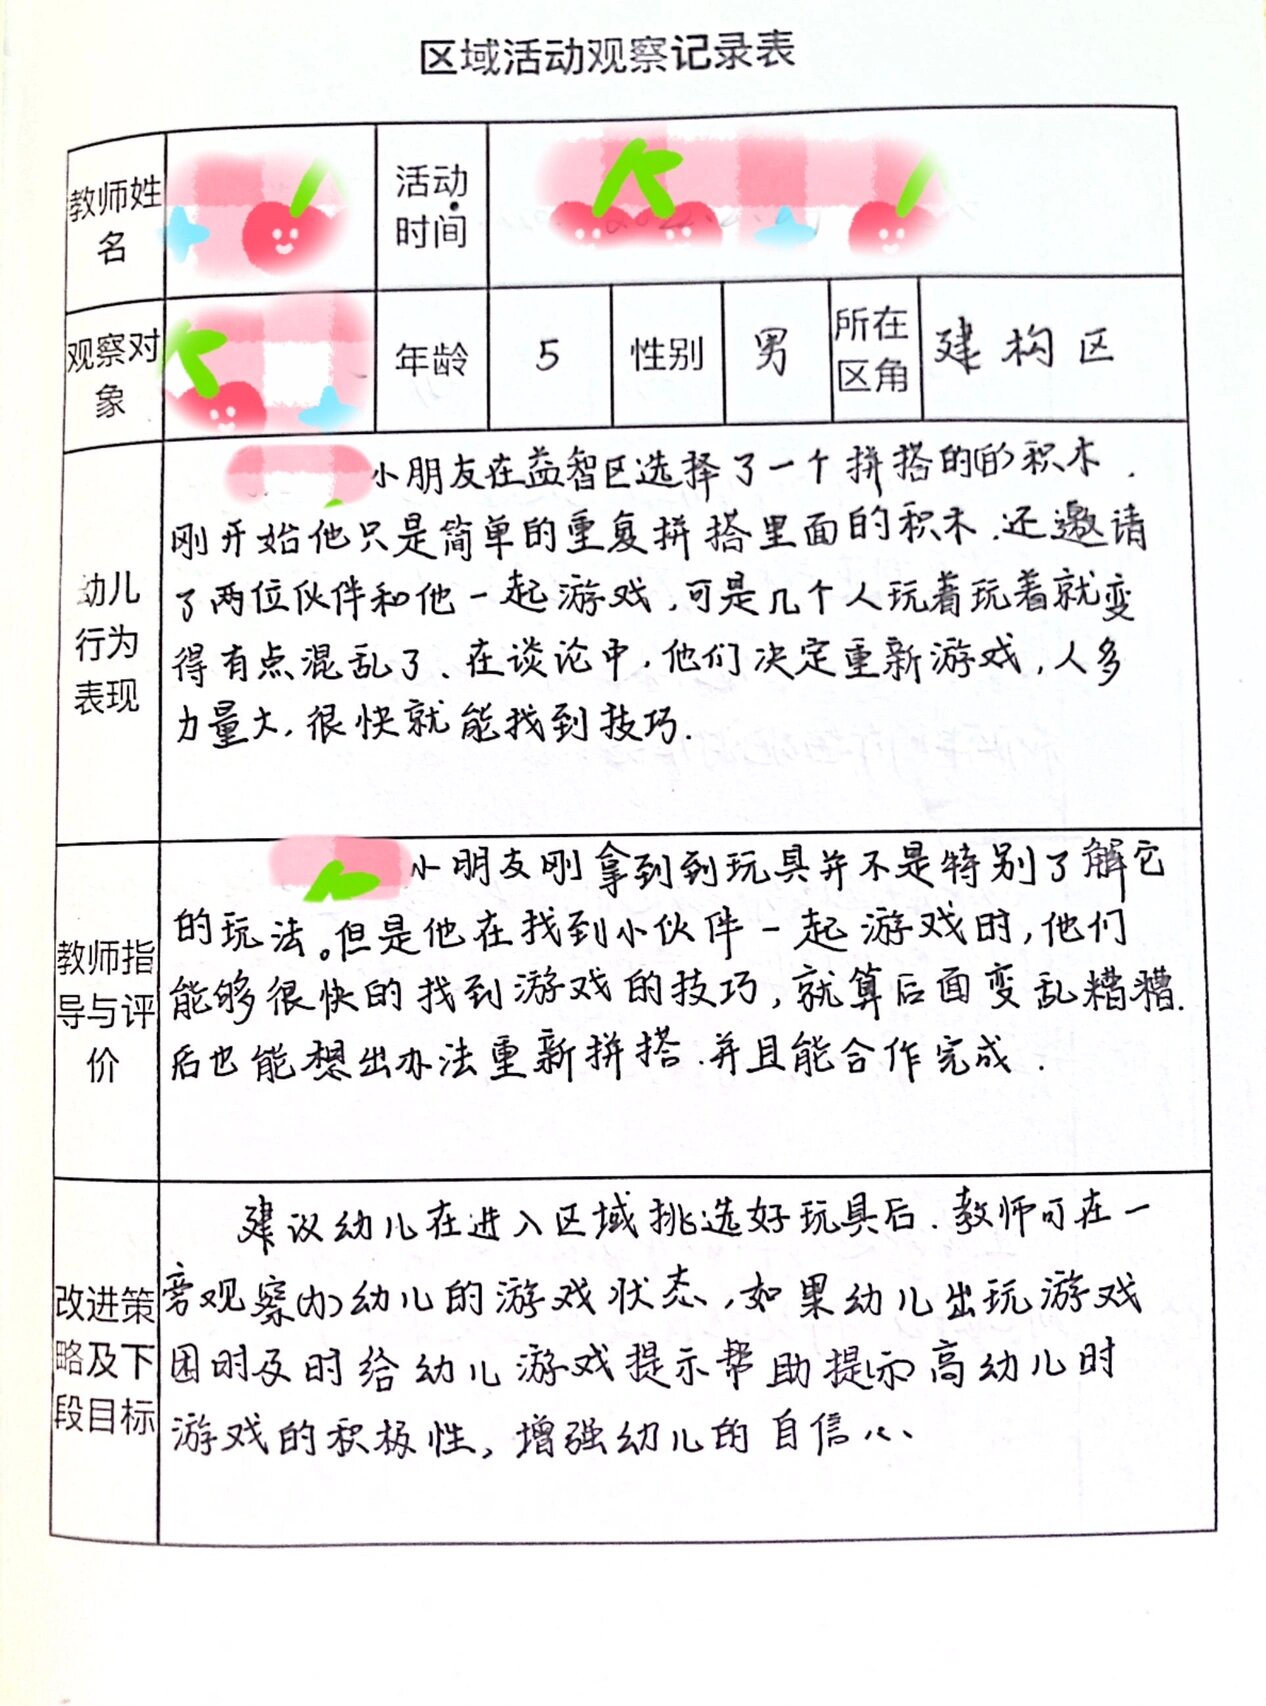 区域活动观察记录表
教师姓名
活动时间
观察对象
年龄 5 性别 男 所在区角 建构区
幼儿行为表现
小朋友在益智区选择了一个拼搭的(的)积木.
刚开始他只是简单的重复拼搭里面的积木.还邀请
了两位伙伴和他一起游戏,可是几个人玩着玩着就变
得有点混乱了、在谈论中,他们决定重新游戏,人多
力量大,很快就能找到技巧.
教师指导与评价
小朋友刚拿到到玩具并不是特别了解它
的玩法。但是他在找到小伙伴一起游戏时,他们
能够很快的找到游戏的技巧,就算后面变乱糟糟.
后也能想出办法重新拼搭.并且能合作完成.
改进策略及下段目标
建议幼儿在进入区域挑选好玩具后.教师可在一
旁观察(力)幼儿的游戏状态,如果幼儿出玩游戏
困时及时给幼儿游戏提示帮助提(示)高幼儿时
游戏的积极性,增强幼儿的自信心、